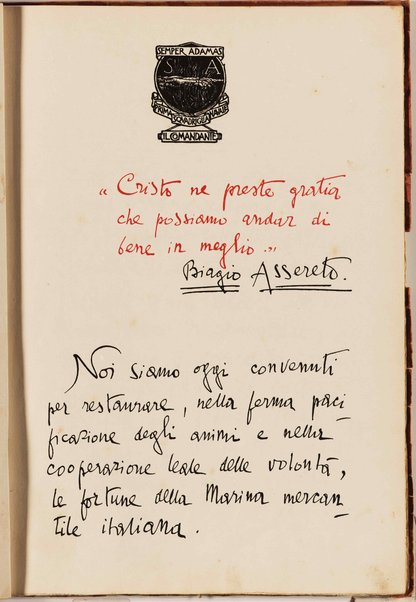 SEMPER ADAMAS
S A
PRIMA SQUADRIGLIA NAVALE
IL COMANDANTE
« Cristo ne preste gratia
che possiamo andar di
bene in meglio. »
Biagio Assereto.
Noi siamo oggi convenuti
per restaurare, nella ferma paci-
ficazione degli animi e nella
cooperazione leale delle volontà,
le fortune della Marina mercan-
tile italiana.